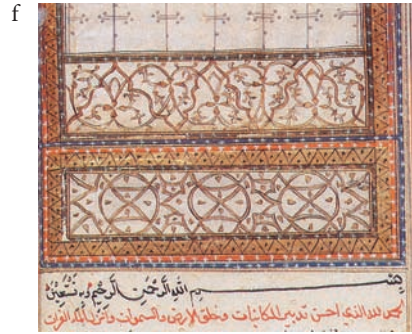 f
بسم الله الرحمن الرحيم وبه نستعين
الحمد لله الذى احسن تدبير الكائنات وخلق الارضين والسموات وانزل الماء الفرات